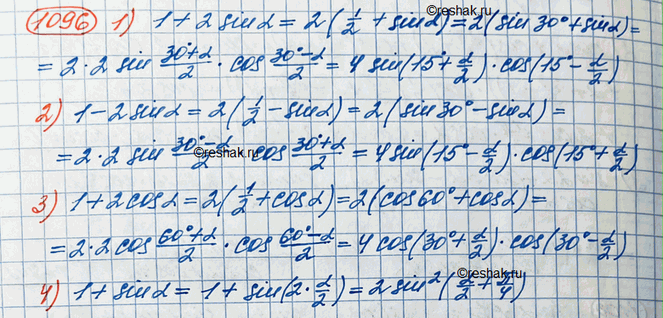 1096 1) 1 + 2 sin α = 2 (1/2 + sin α) = 2 (sin 30° + sin α) =
= 2·2 sin (30°+α)/2 · cos (30°-α)/2 = 4 sin(15° + α/2) · cos(15° - α/2)
2) 1 - 2 sin α = 2 (1/2 - sin α) = 2 (sin 30° - sin α) =
= 2·2 sin (30°-α)/2 cos (30°+α)/2 = 4 sin(15° - α/2) · cos(15° + α/2)
3) 1 + 2 cos α = 2 (1/2 + cos α) = 2 (cos 60° + cos α) =
= 2·2 cos (60°+α)/2 · cos (60°-α)/2 = 4 cos(30° + α/2) · cos(30° - α/2)
4) 1 + sin α = 1 + sin(2·α/2) = 2 sin²(α/2 + π/4)
©reshak.ru
©reshak.ru
©reshak.ru
©reshak.ru
©reshak.ru